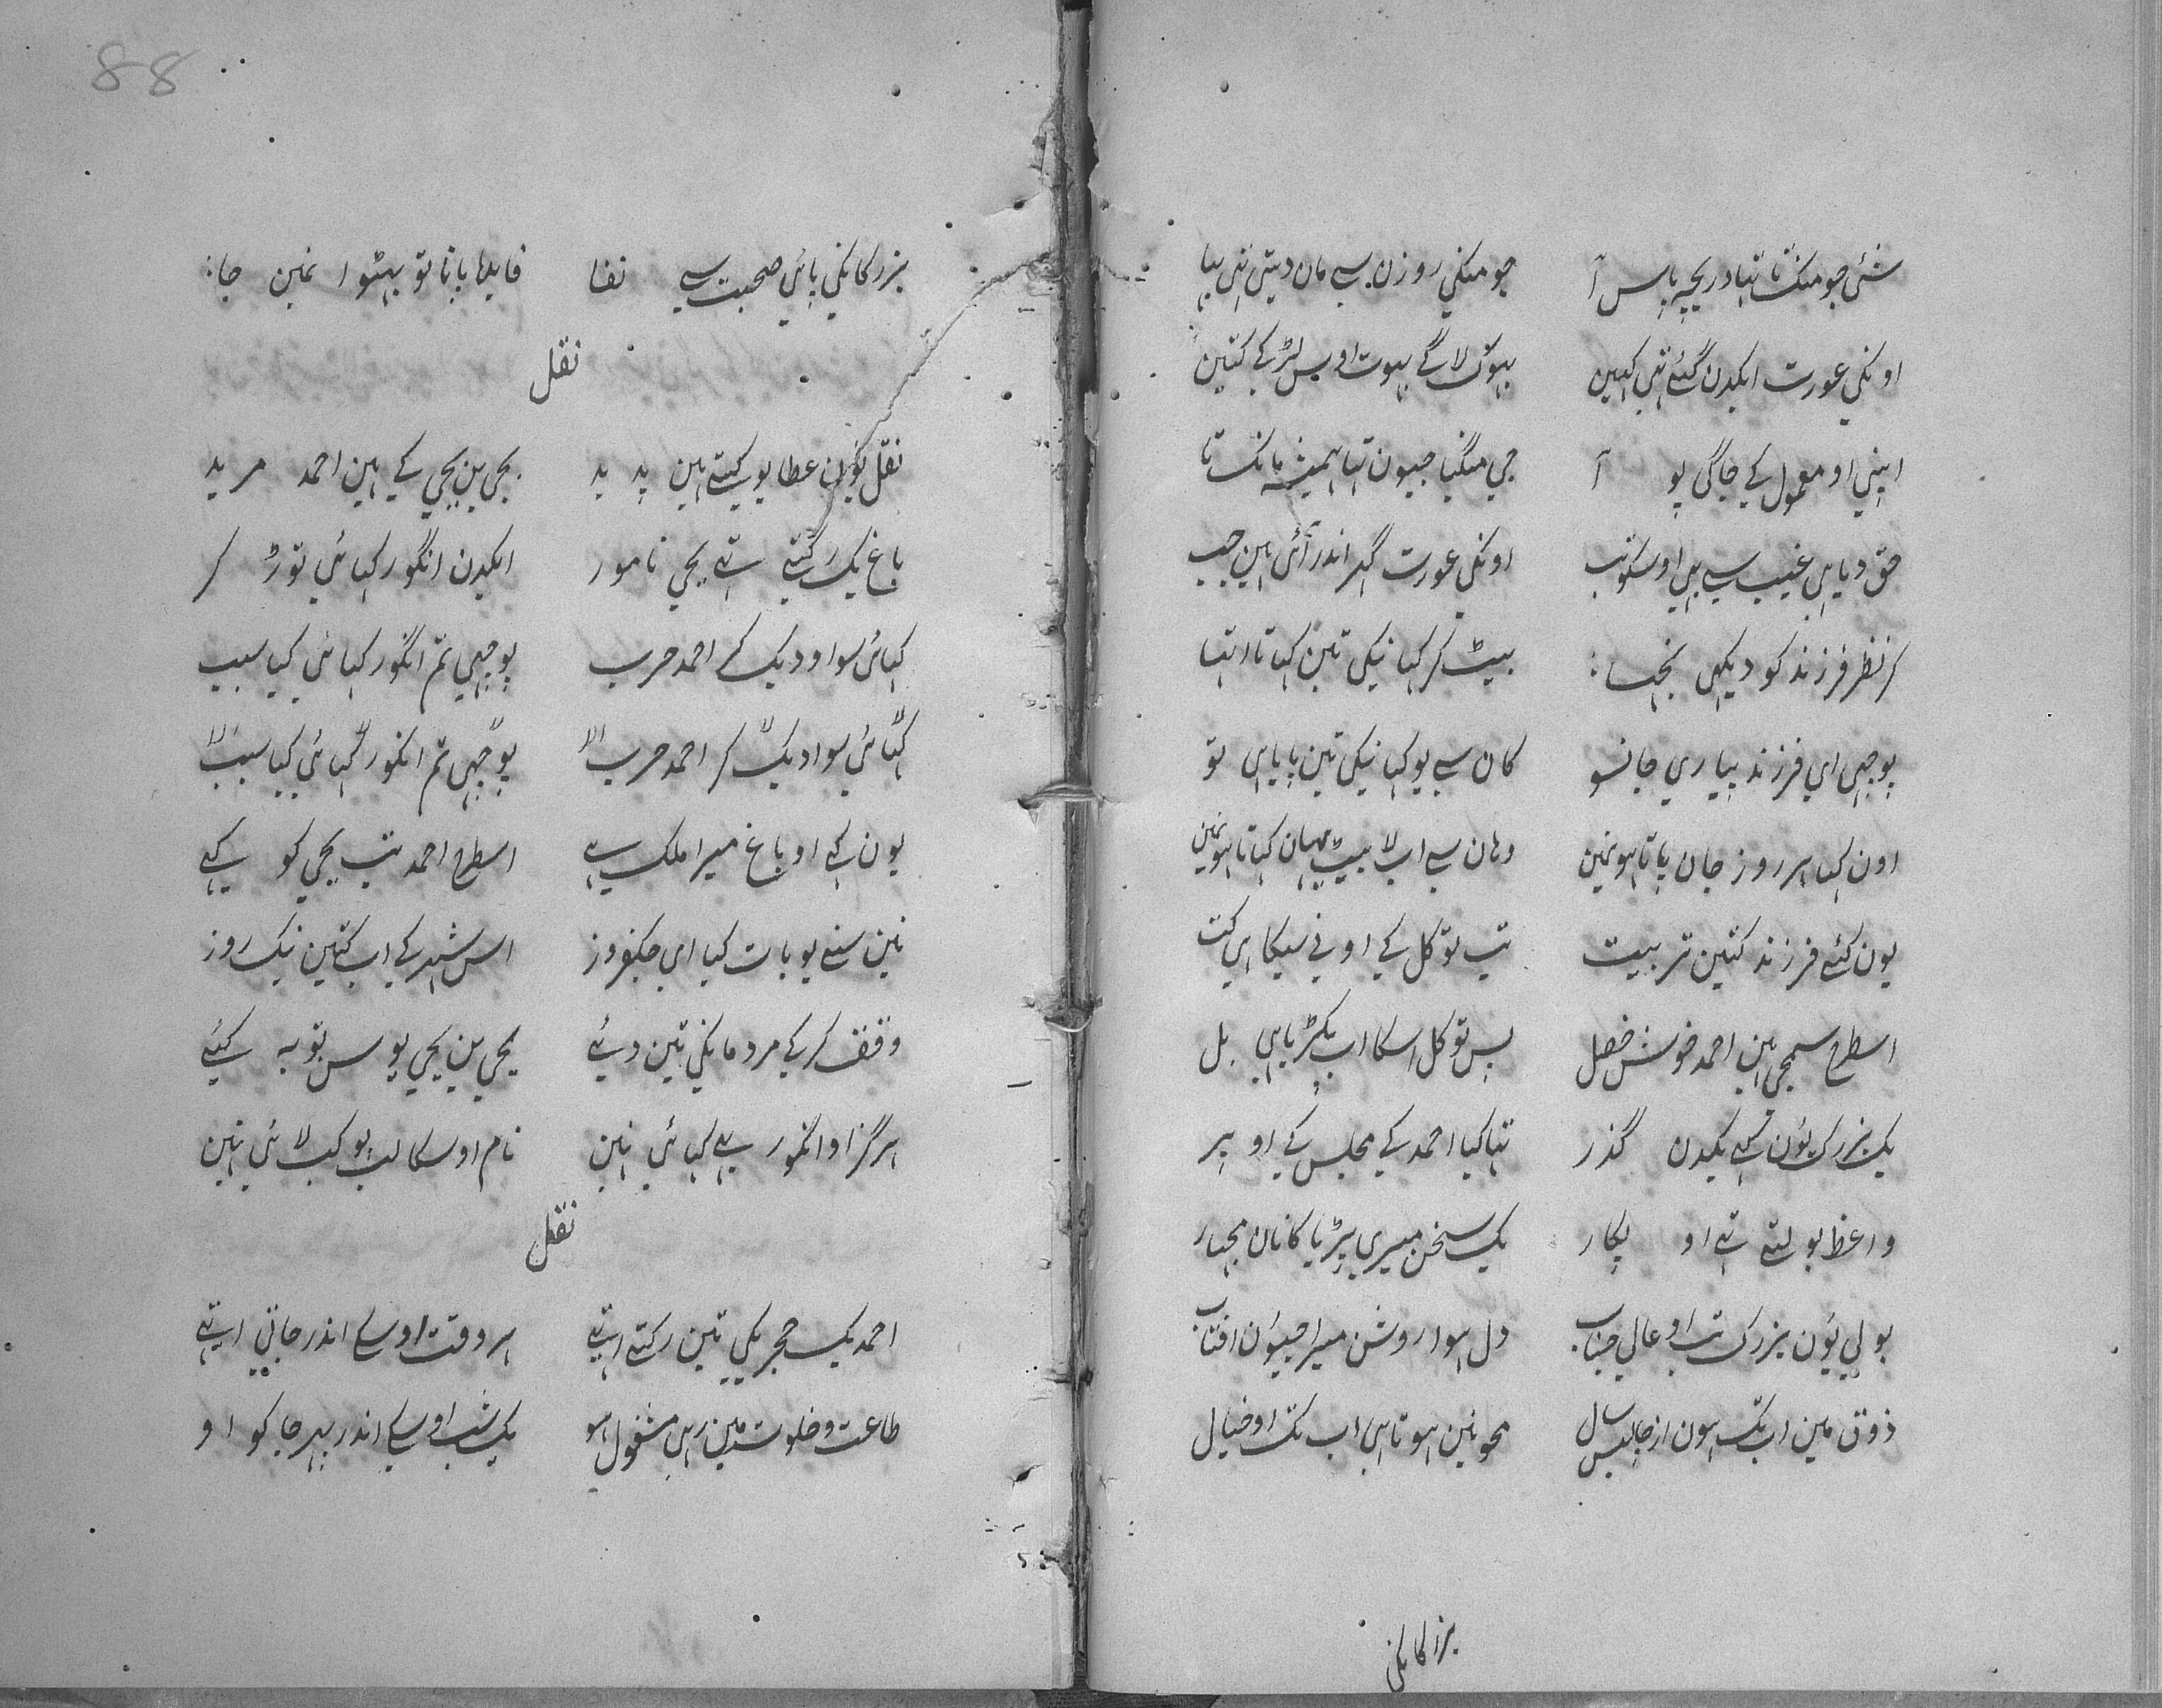 شئی جو منگتا تہا دریچہ پاس آ جو منگی روزن سے مان دیتی تہی بہا
اونکی عورت ایکدن گئے تہی کہین بہوک لاگے بہوت اوس لڑکے کتین
اپنی او معمول کے جاگی پو آ جی منگیا جیون تہا ہمیشہ مانگتا
حق دیا ہی غیب سے بہی اوسکو تب اونکی عورت گہر اندر آئی ہین جب
کر نظر فرزند کو دیکہی بیٹ کر کہا نیکی تین کہاتا اتہا
پوچہی ای فرزند پیاری جانسو کان سے یو کہا نیکی تین پایا ہی تو
اون کہا ہر روز جان پاتا ہو نمین وہان سے اب لا بیٹ یہان کہاتا ہو نمین
یون کئے فرزند کتین تربیت تب توکل کے اونی سیکا ہی گت
اسطرح سمجہی ہین احمد خوش خصل پس توکل اسکا اب پکڑیا ہی بل
یک بزرگ یون کہے یکدن گذر تہا کیا احمد کے مجلس کے اوپر
واعظ بولتے تہے او پکار یک سخن میری پڑیا کانان مجہار
بولی یون بزرگ تب او عالی جناب دل ہوا روشن میرا جیون افتاب
ذوق مین اب تک ہون از چالیس سال محو نین ہوتا ہی اب تک او خیال
88
بزرگانکی پائی صحبت سے نفا فایدا پاتا تو بہٹو انمین جا
نقل
نقل یون عطا یو کہتے ہین پدید یحیی بن یحیی کے ہین احمد مرید
باغ یک رکہتے تہے یحیی نامور ایکدن انگور کہائی توڑ کر
کہائی سو او دیک کے احمد حرب پوچہی تم انگور کہائی کیا سبب
کہائی سو او دیک کر احمد حرب پوچہی تم انگور کہائی کیا سبب
یون کہے او باغ میرا ملک ہے اسطرح احمد تب یحیی کو کہے
نین سنے یو بات کیا ای جگفروز اس شہر کے اب کتین نیک روز
وقف کر کے مردمانکی تین دئے یحیی بن یحیی یو سن توبہ کئے
ہرگز او انگور پہے کہائی نہین نام اوسکا لب یو کب لائی نہین
نقل
احمد یک حجریکی تین رکہتے اتہے ہر وقت اوسکے اندر جاتی اتہے
طاعت و خلوت مین رہی مشغول ہو یک شب اوسکے اندر پہر جا کو او